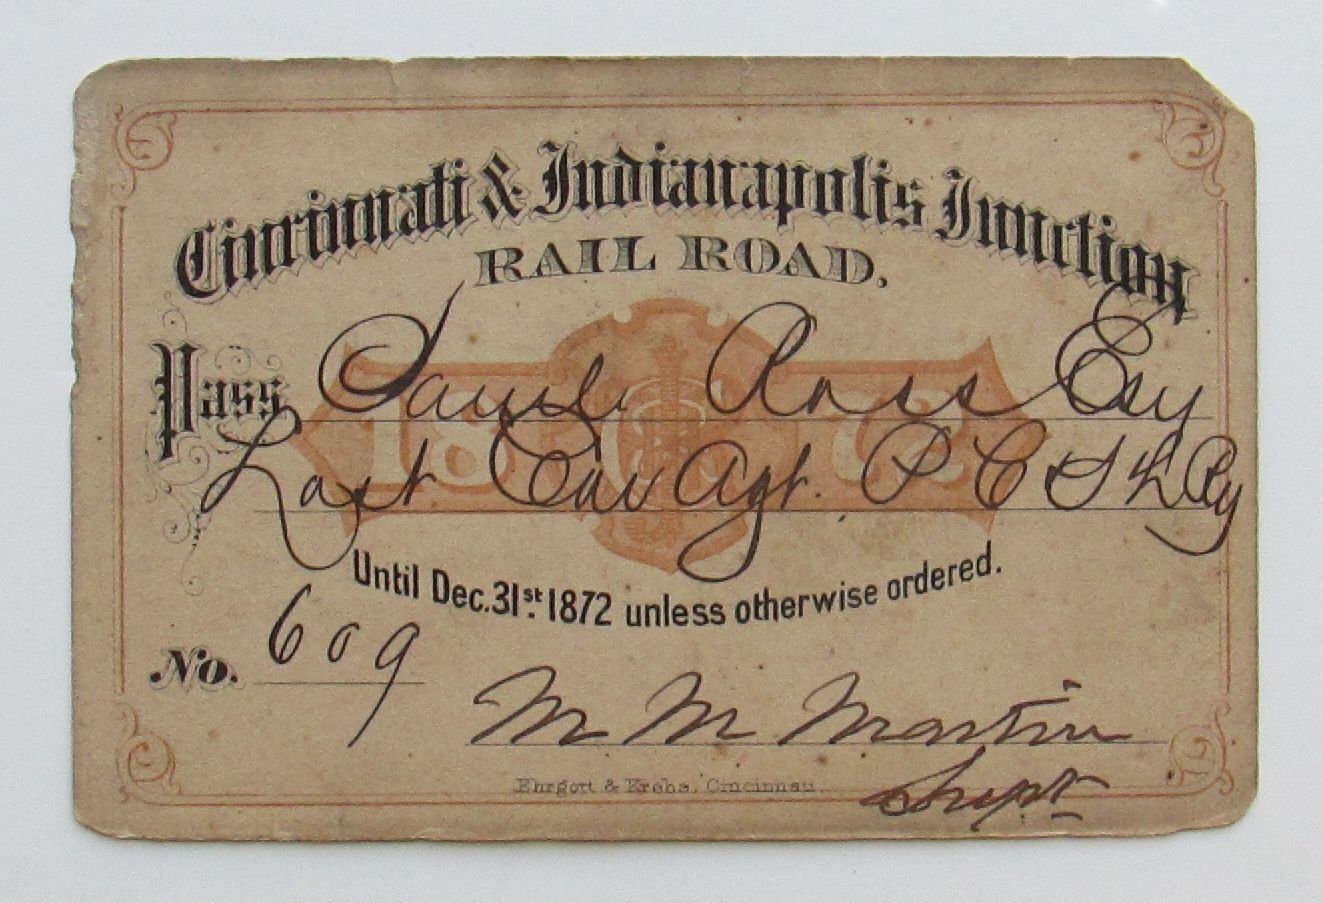 Cincinnati & Indianapolis Junction
RAIL ROAD.
Pass Saml. Ross Esq
Lost Car Agt. P C & St L Ry
18 72
Until Dec. 31st. 1872 unless otherwise ordered.
No. 609
M M Martin
Supt
Ehrgott & Krebs, Cincinnati.